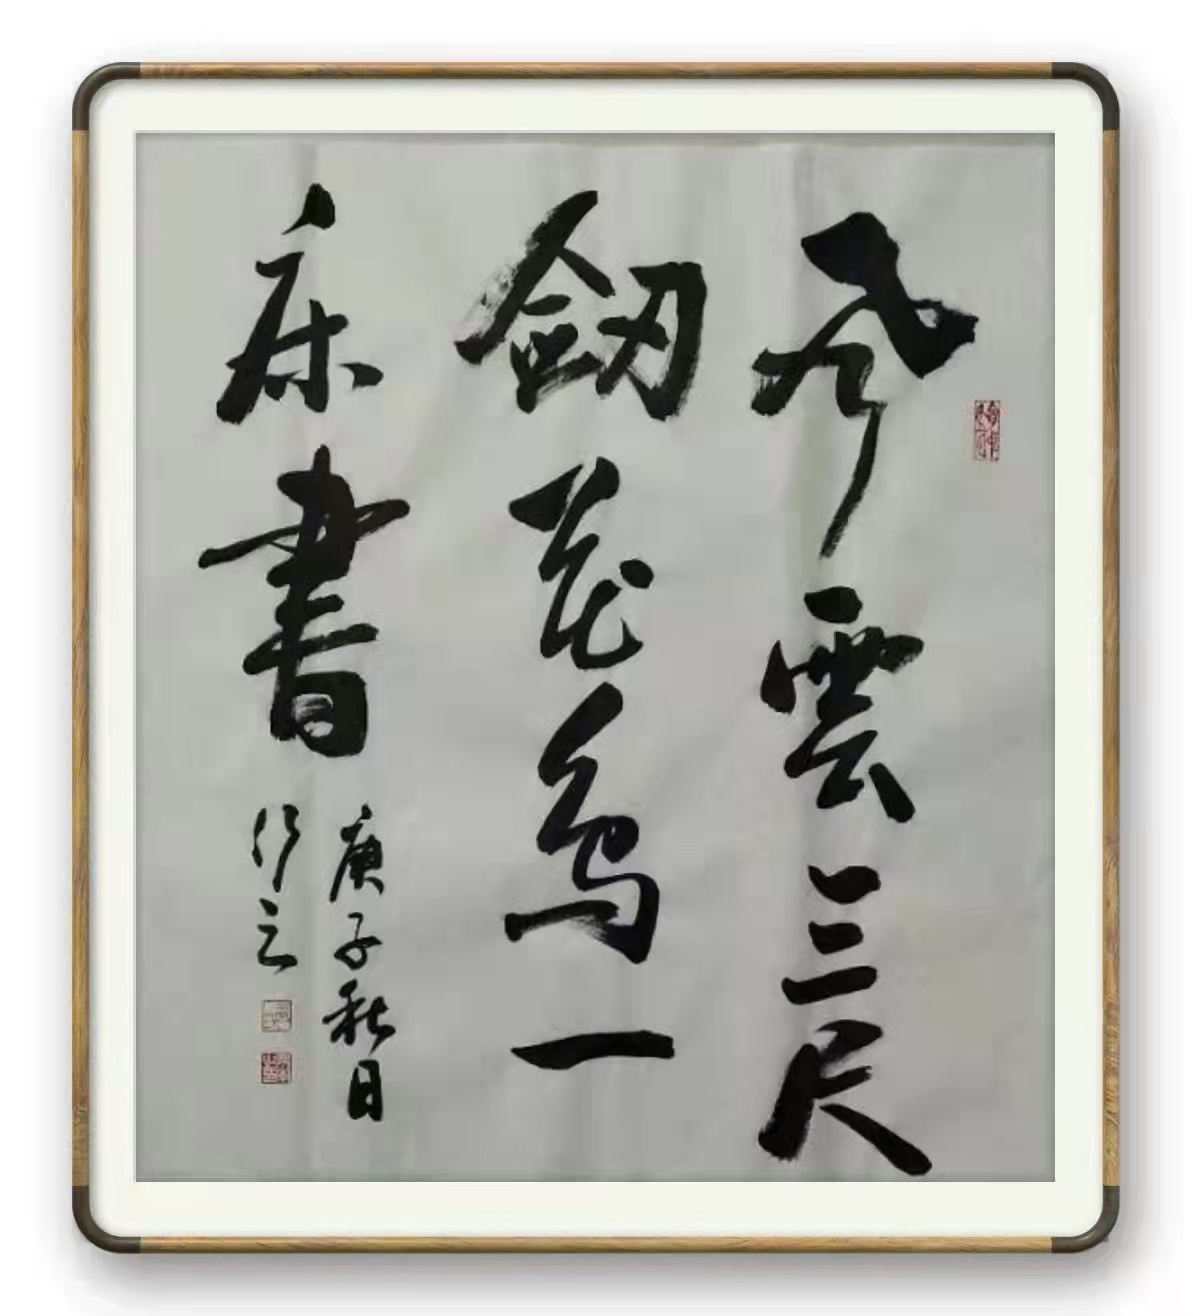 风雲三尺
劔花鸟一
床書
庚子秋日
行之